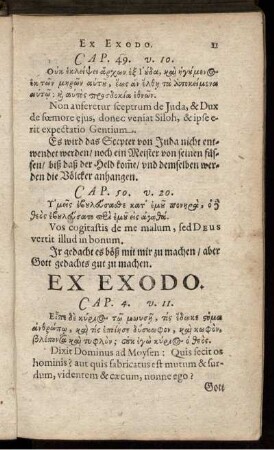 EX EXODO. 21
CAP. 49. v. 10.
Οὐκ ἐκλείψει ἄρχων ἐξ Ἰούδα, καὶ ἡγούμενος
ἐκ τῶν μηρῶν αὐτοῦ, ἕως ἂν ἔλθῃ τὰ ἀποκείμενα
αὐτῷ: ἢ αὐτὸς προσδοκία ἐθνῶν.
Non auferetur sceptrum de Juda, & Dux
de fœmore ejus, donec veniat Siloh, & ipse e-
rit expectatio Gentium.
Es wird das Scepter von Juda nicht ent-
wendet werden/ noch ein Meister von seinen füs-
sen/ biß daß der Held kome/ und demselben wer-
den die Völcker anhangen.
CAP. 50. v. 20.
Ὑμεῖς ἐβουλεύσασθε κατ' ἐμοῦ πονηρὰ, ὁ
θεὸς ἐβουλεύσατο περὶ ἐμοῦ εἰς ἀγαθά.
Vos cogitastis de me malum, sed DEUS
vertit illud in bonum.
Jr gedacht es böß mit mir zu machen/ aber
Gott gedachts gut zu machen.
EX EXODO.
CAP. 4. v. 11.
Εἶπε δὲ κύριος τῷ μωυσῇ, τίς ἔδωκε στόμα
ἀνθρώπῳ, καὶ τίς ἐποίησε δύσκωφον, καὶ κωφὸν,
βλέποντα καὶ τυφλόν; οὐκ ἐγὼ κύριος ὁ θεός.
Dixit Dominus ad Moysen: Quis fecit os
hominis? aut quis fabricatus est mutum & sur-
dum, videntem & cæcum, nonne ego?
Gott